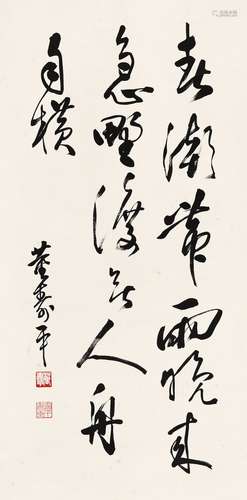 春潮带雨晚来
急野渡无人舟
自横
董寿平